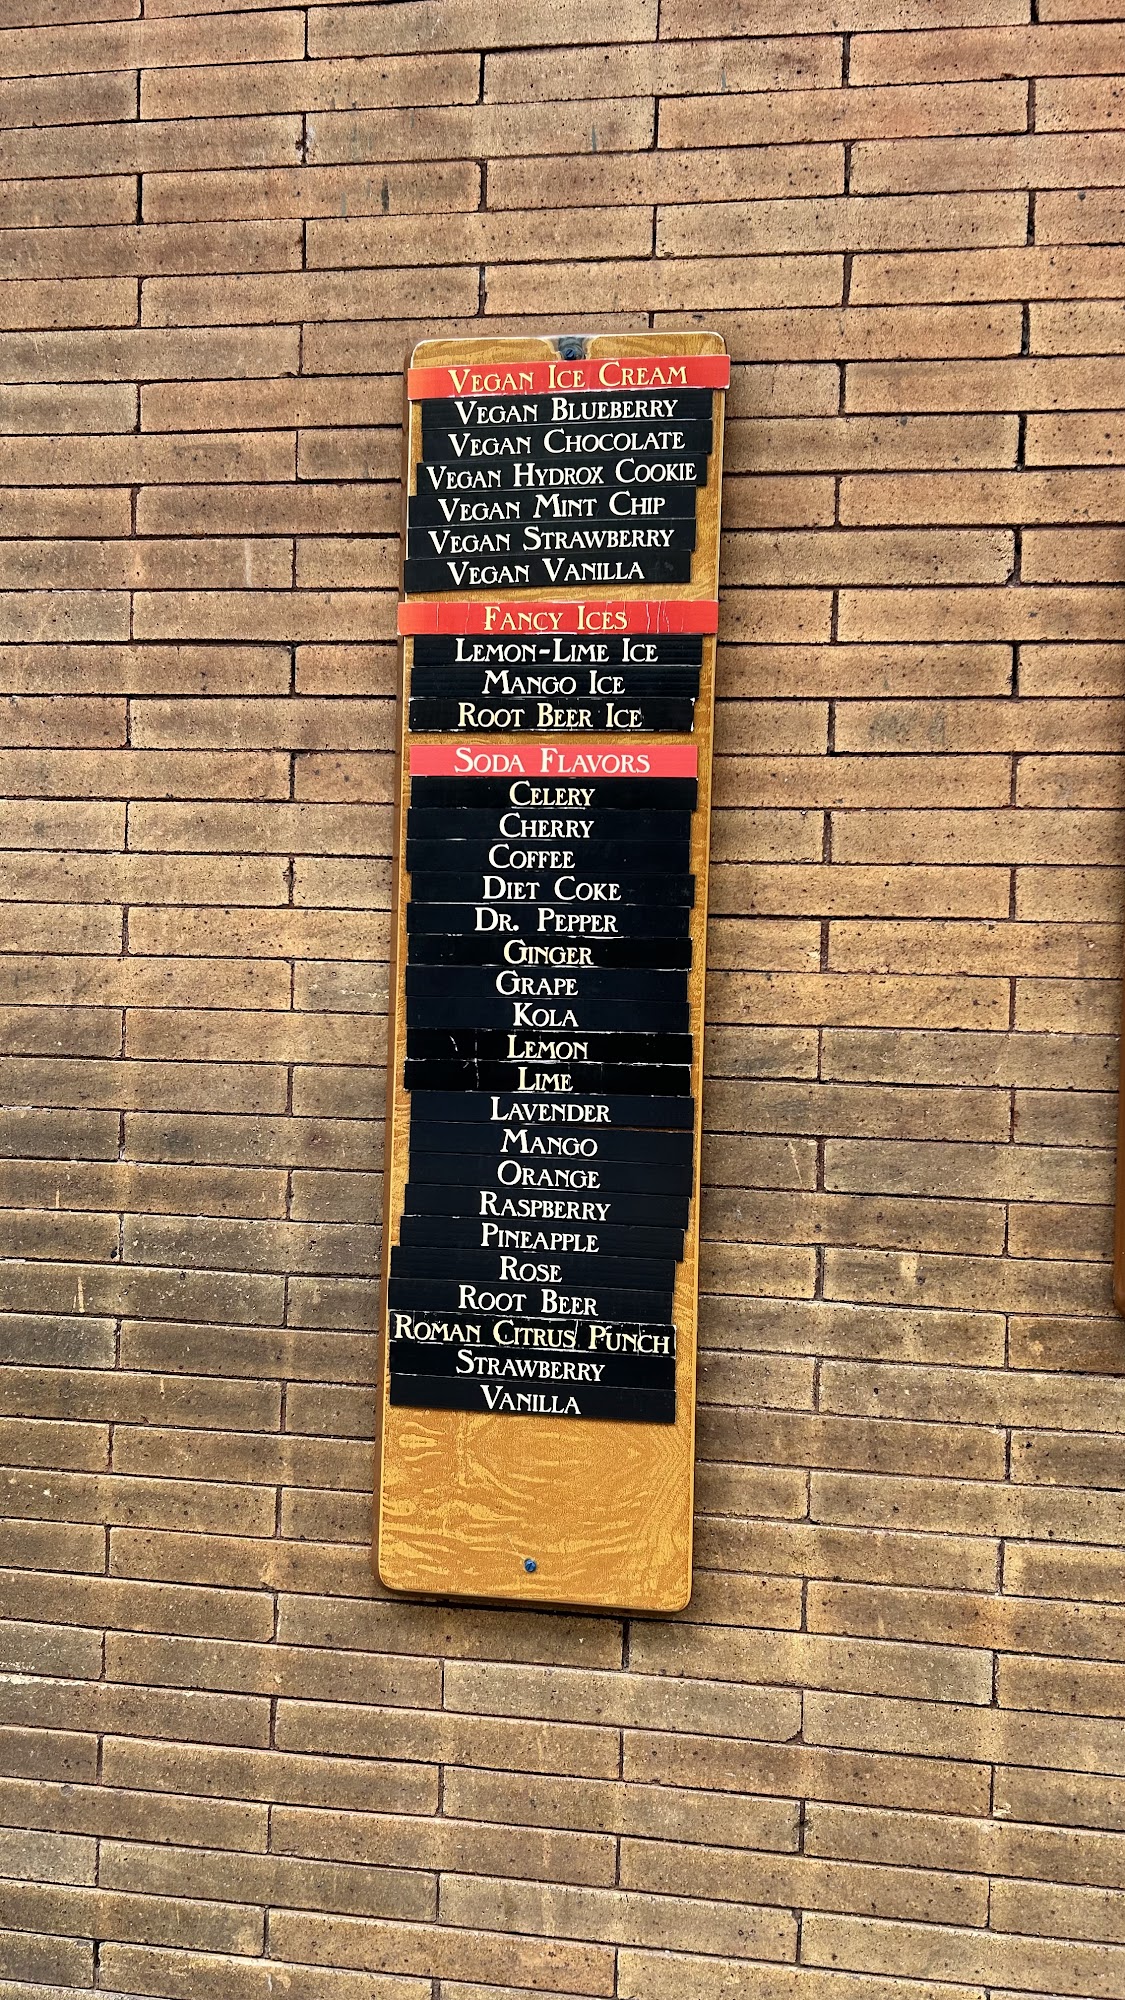 Vegan Ice Cream
Vegan Blueberry
Vegan Chocolate
Vegan Hydrox Cookie
Vegan Mint Chip
Vegan Strawberry
Vegan Vanilla
Fancy Ices
Lemon-Lime Ice
Mango Ice
Root Beer Ice
Soda Flavors
Celery
Cherry
Coffee
Diet Coke
Dr. Pepper
Ginger
Grape
Kola
Lemon
Lime
Lavender
Mango
Orange
Raspberry
Pineapple
Rose
Root Beer
Roman Citrus Punch
Strawberry
Vanilla